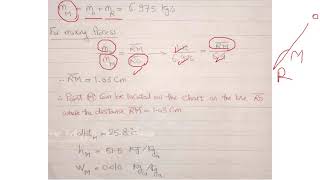 ṁM = ṁo + ṁR = 6.975 kg/s
For mixing Process
ṁo / ṁM = RM / RO
∴ RM = 1.03 Cm
∴ Point M Can be located on the chart on the line RO
where the distance RM = 1.03 Cm
dbtM = 25.8°C
hM = 51.5 kJ/kga
wM = 0.010 kgv/kga
M
R